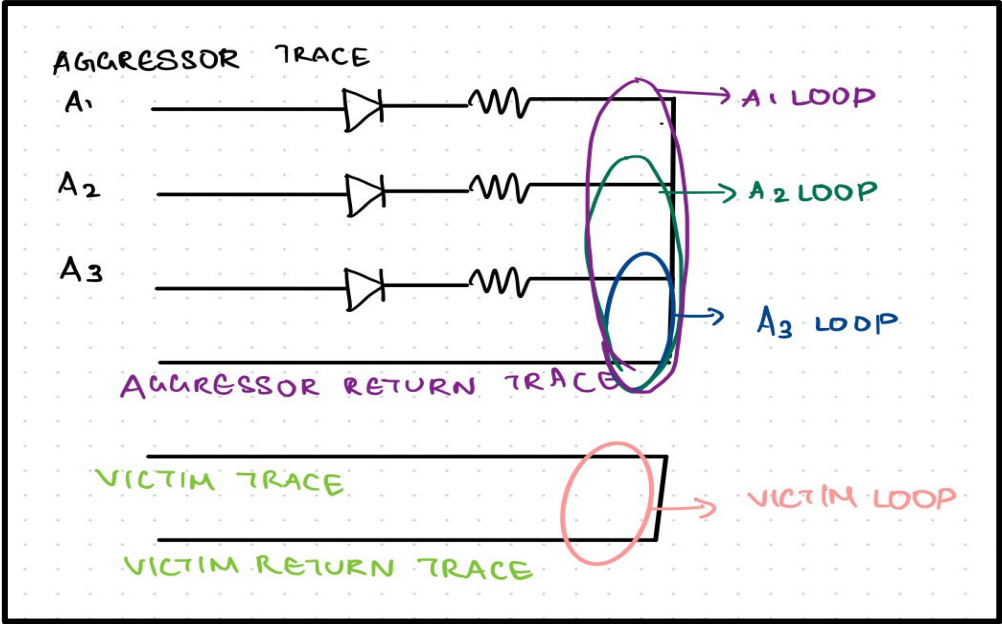 AGGRESSOR TRACE
A1
A1 LOOP
A2
A2 LOOP
A3
A3 LOOP
AGGRESSOR RETURN TRACE
VICTIM TRACE
VICTIM LOOP
VICTIM RETURN TRACE